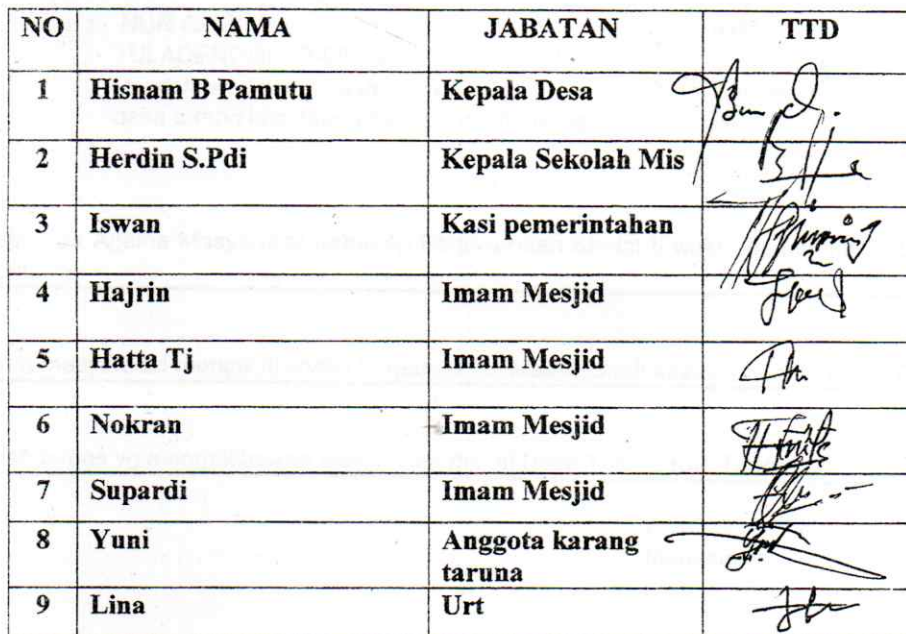 NO NAMA JABATAN TTD
1 Hisnam B Pamutu Kepala Desa
2 Herdin S.Pdi Kepala Sekolah Mis
3 Iswan Kasi pemerintahan
4 Hajrin Imam Mesjid
5 Hatta Tj Imam Mesjid
6 Nokran Imam Mesjid
7 Supardi Imam Mesjid
8 Yuni Anggota karang
taruna
9 Lina Urt